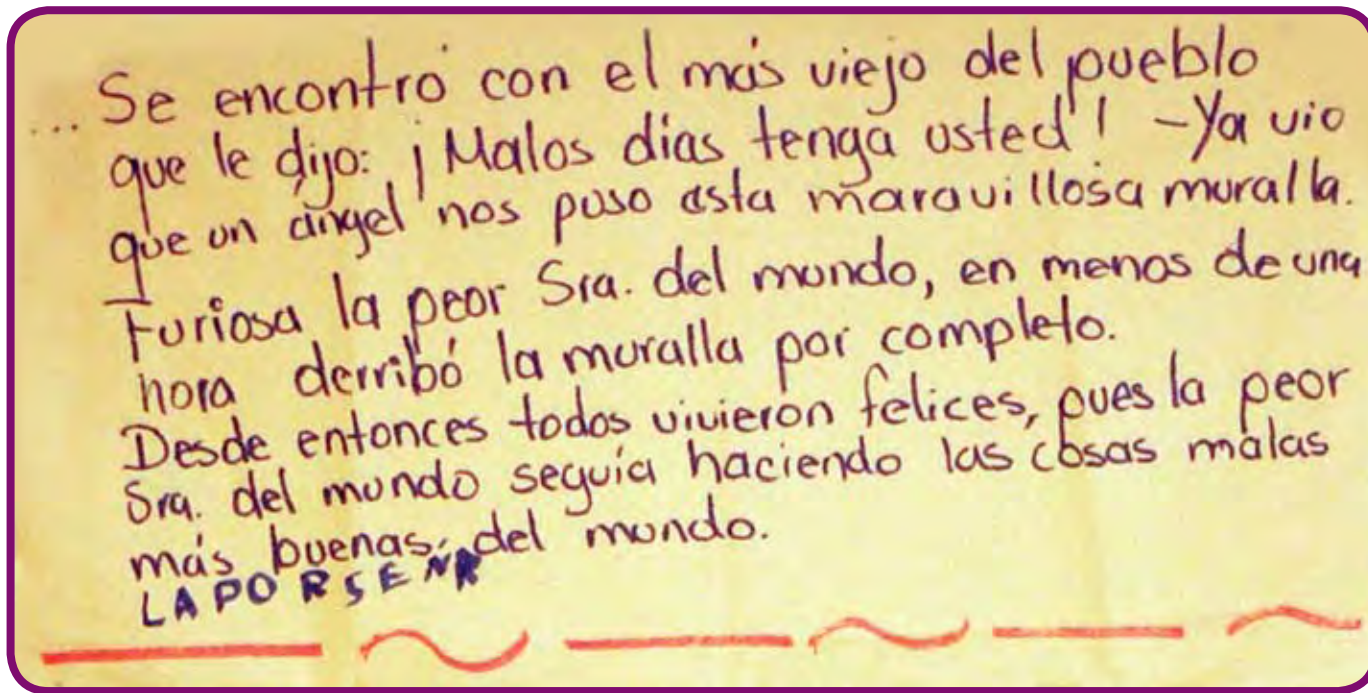 ... Se encontró con el más viejo del pueblo
que le dijo: ¡Malos días tenga usted! -Ya vio
que un ángel nos puso asta maravillosa muralla.
Furiosa la peor Sra. del mundo, en menos de una
hora derribó la muralla por completo.
Desde entonces todos vivieron felices, pues la peor
Sra. del mundo seguía haciendo las cosas malas
más buenas, del mundo.
LAPORSEÑR